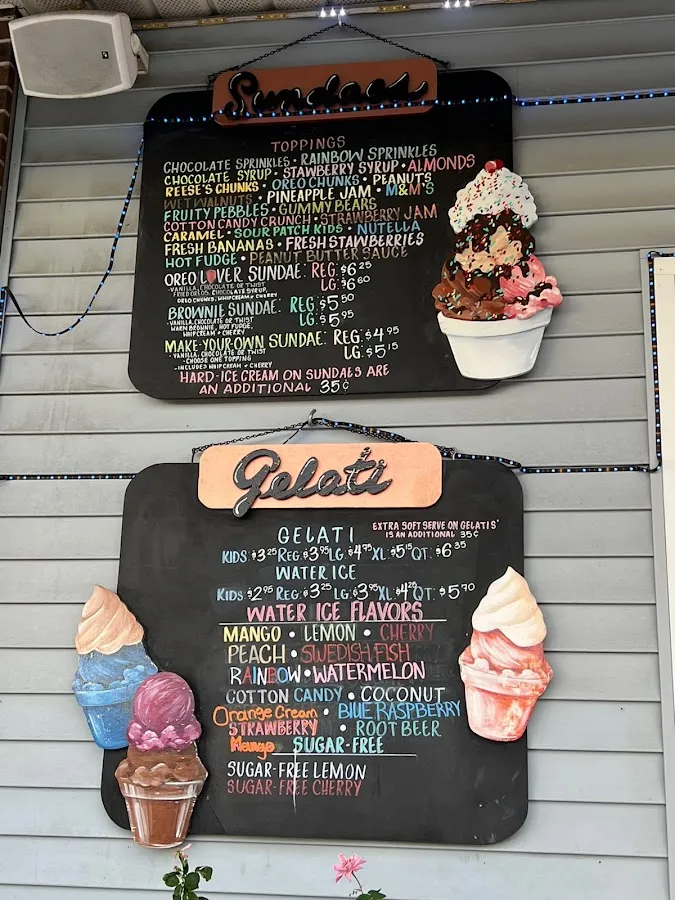 Sundaes
TOPPINGS
CHOCOLATE SPRINKLES • RAINBOW SPRINKLES
CHOCOLATE SYRUP • STAWBERRY SYRUP • ALMONDS
REESE'S CHUNKS • OREO CHUNKS • PEANUTS
WET WALNUTS • PINEAPPLE JAM • M&M'S
FRUITY PEBBLES • GUMMY BEARS
COTTON CANDY CRUNCH • STRAWBERRY JAM
CARAMEL • SOUR PATCH KIDS • NUTELLA
FRESH BANANAS • FRESH STAWBERRIES
HOT FUDGE • PEANUT BUTTER SAUCE
OREO LOVER SUNDAE: REG: $6.25
-VANILLA, CHOCOLATE OR TWIST LG: $6.60
FRIED OREOS, CHOCOLATE SYRUP,
OREO CHUNKS, WHIPCREAM & CHERRY
BROWNIE SUNDAE: REG: $5.50
-VANILLA, CHOCOLATE OR TWIST LG: $5.95
WARM BROWNIE, HOT FUDGE,
WHIPCREAM & CHERRY
MAKE-YOUR-OWN SUNDAE: REG: $4.95
-VANILLA, CHOCOLATE OR TWIST LG: $5.15
-CHOOSE ONE TOPPING
-INCLUDES WHIPCREAM & CHERRY
HARD-ICE CREAM ON SUNDAES ARE
AN ADDITIONAL 35¢
Gelati
GELATI EXTRA SOFT SERVE ON GELATIS'
IS AN ADDITIONAL 35¢
KIDS: $3.25 REG: $3.95 LG: $4.75 XL: $5.15 QT: $6.35
WATER ICE
KIDS: $2.95 REG: $3.25 LG: $3.95 XL: $4.25 QT: $5.70
WATER ICE FLAVORS
MANGO • LEMON • CHERRY
PEACH • SWEDISH FISH
RAINBOW • WATERMELON
COTTON CANDY • COCONUT
Orange Cream • BLUE RASPBERRY
STRAWBERRY • ROOT BEER
Mango SUGAR-FREE
SUGAR-FREE LEMON
SUGAR-FREE CHERRY